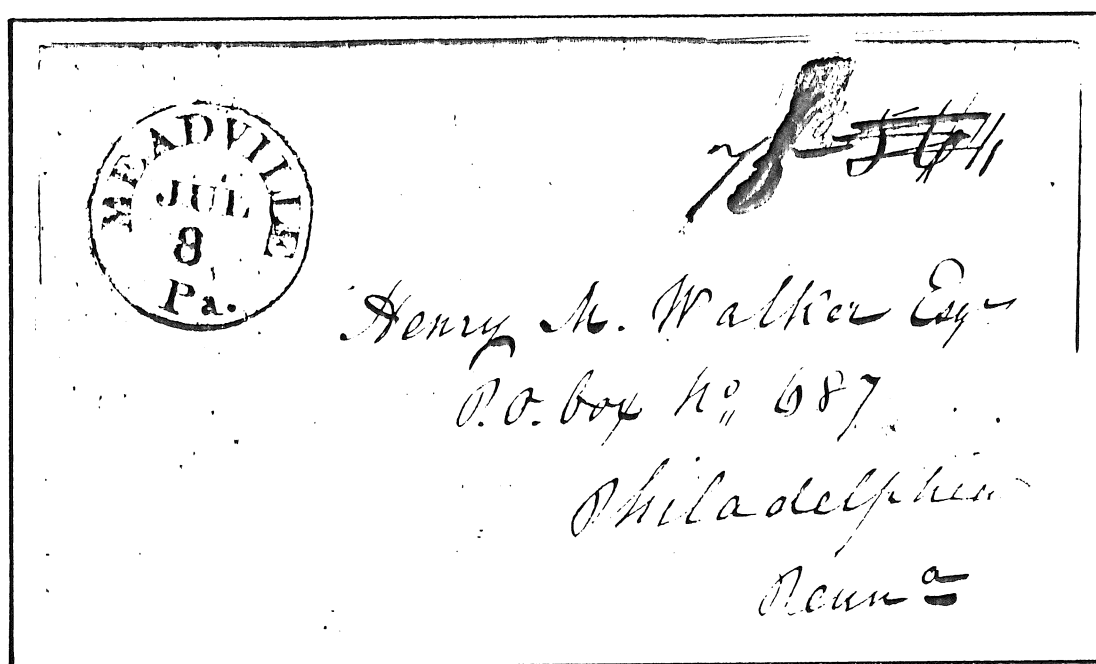 MEADVILLE
JUL
8
Pa.
Henry M. Walker Esqr
P.O. box No 687
Philadelphia
Penna